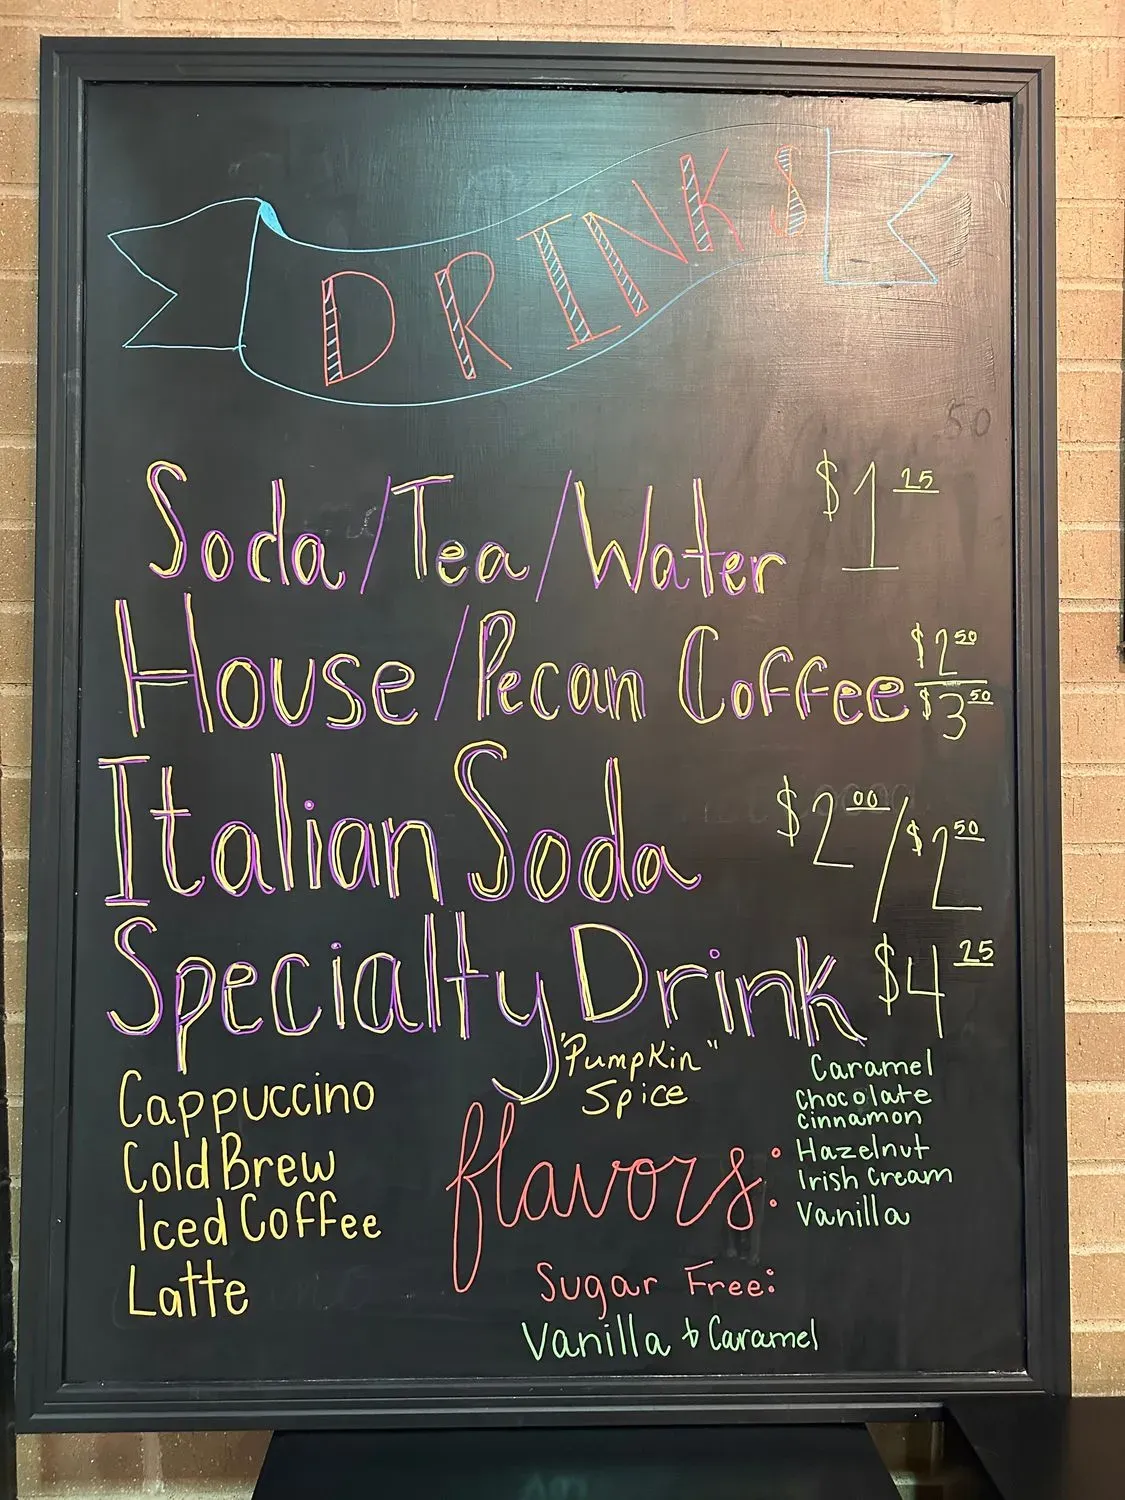 DRINKS
Soda/Tea/Water $1 25
House/Pecan Coffee $2 50 $3 50
Italian Soda $2 00/$2 50
Specialty Drink $4 25
"Pumpkin"
Spice
Cappuccino
Cold Brew
Iced Coffee
Latte
flavors:
Caramel
chocolate
cinnamon
Hazelnut
Irish Cream
Vanilla
Sugar Free:
Vanilla & Caramel